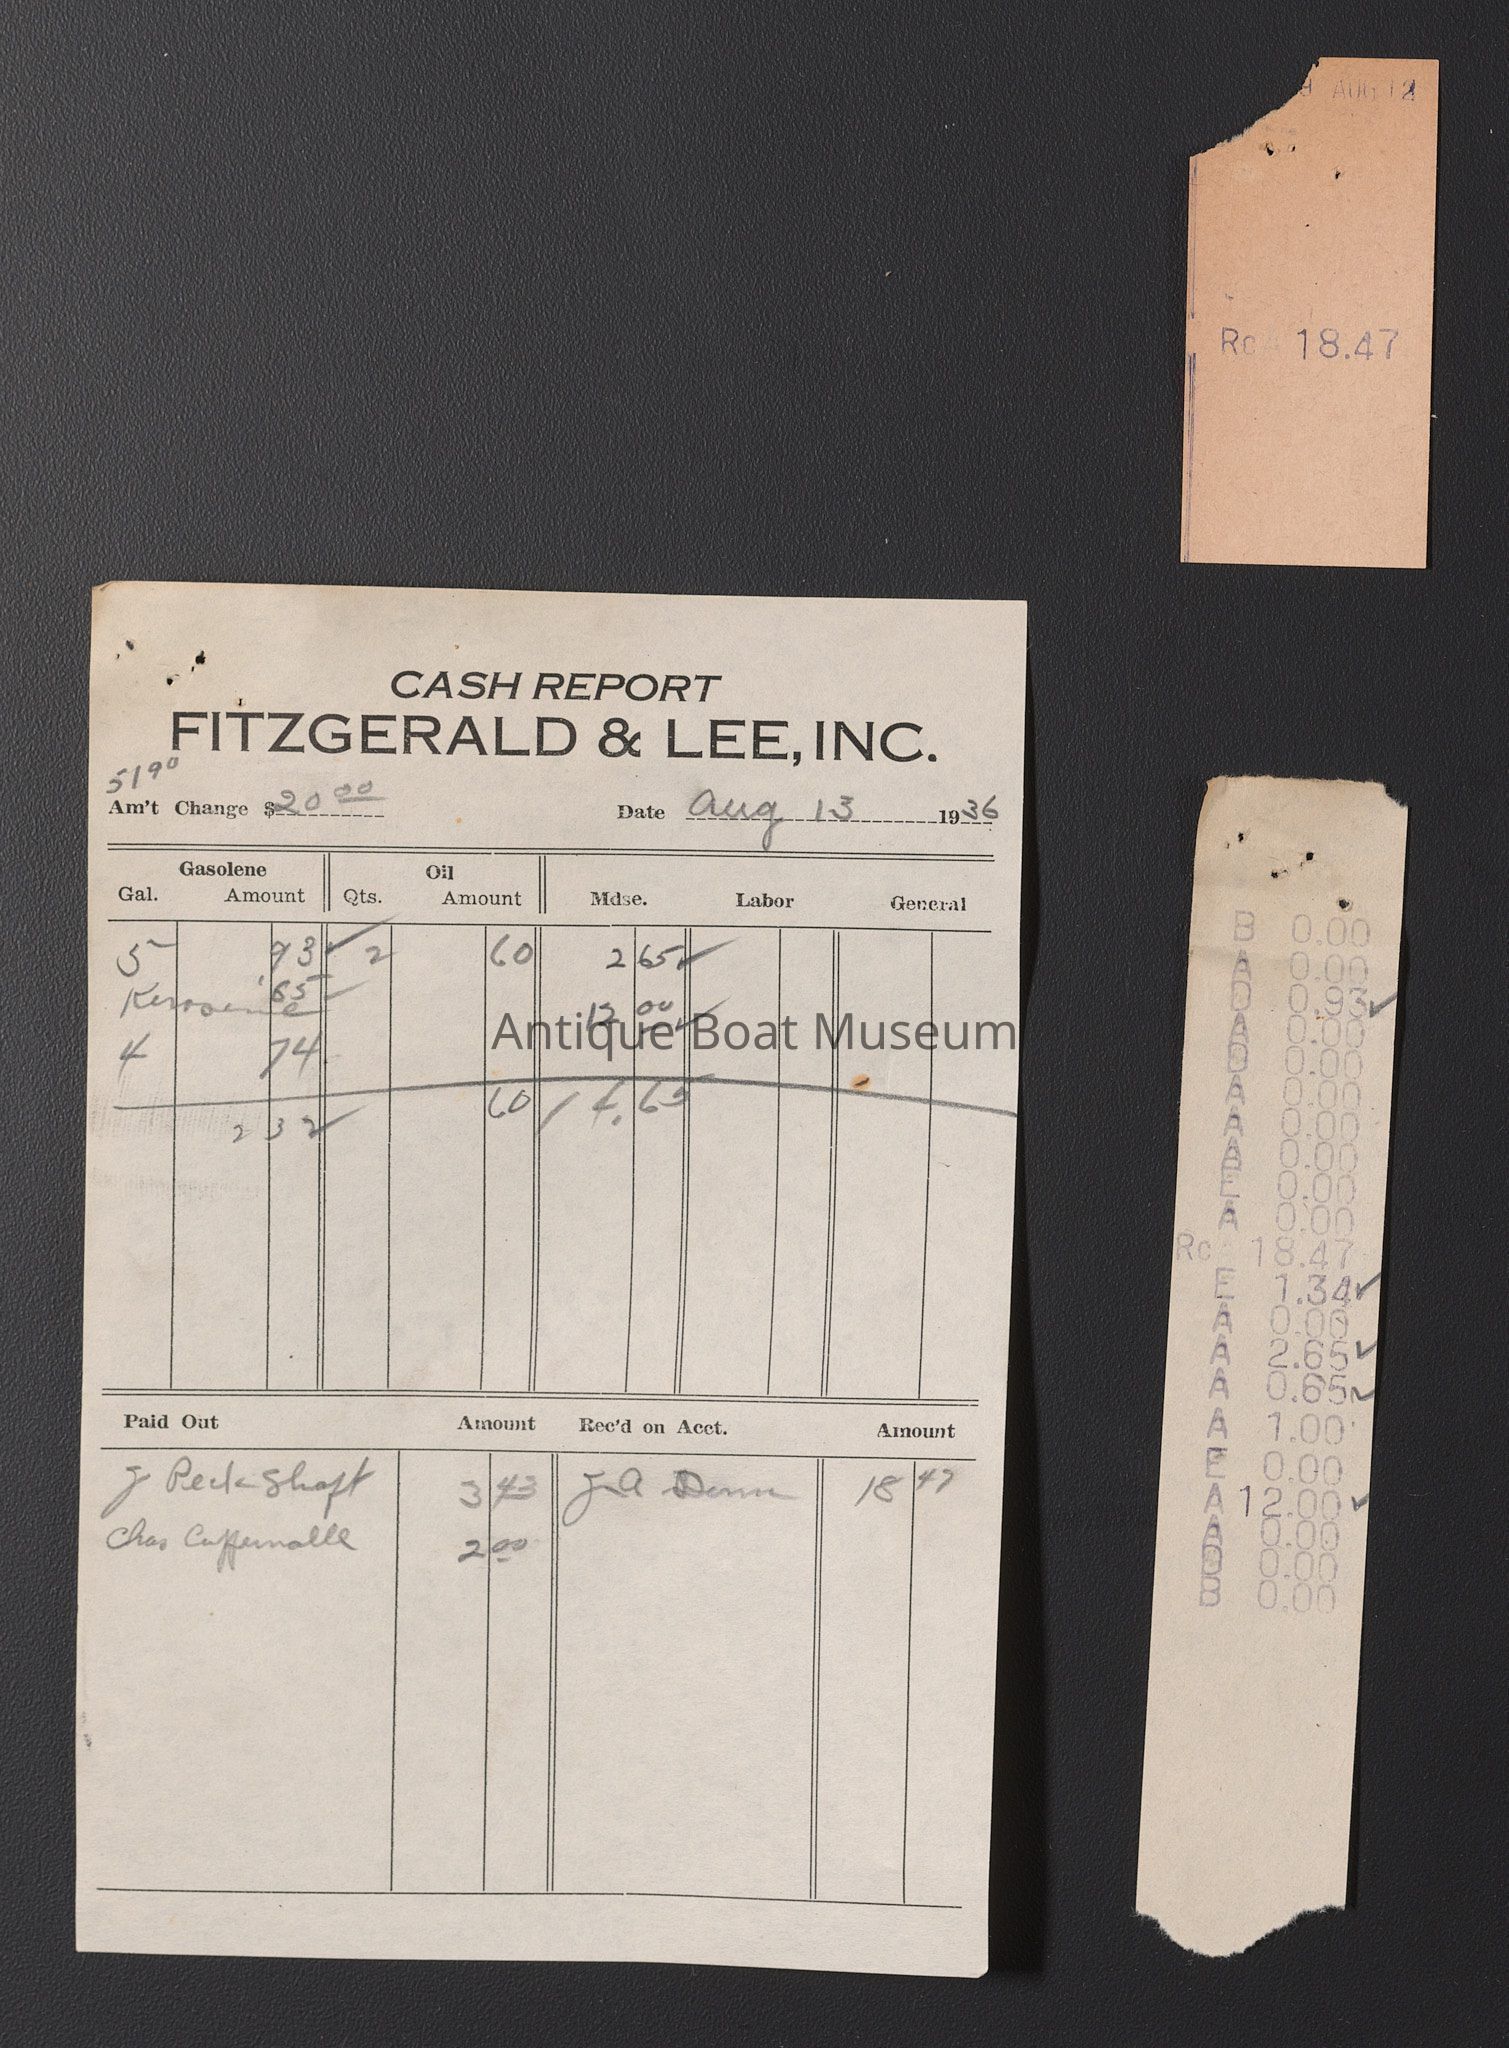 AUG 12
Rc 18.47
CASH REPORT
FITZGERALD & LEE, INC.
5190
Am't Change $ 20 00 Date Aug 13 1936
Gasolene Oil
Gal. Amount Qts. Amount Mdse. Labor General
5 93 2 60 2 65
Kerosene 65 12 00
4 74
2 32 60 14.65
Antique Boat Museum
Paid Out Amount Rec'd on Acct. Amount
3 43 J A 18 47
Chas 2 00
B 0.00
A 0.00
D 0.93
A 0.00
D 0.00
A 0.00
A 0.00
A 0.00
E 0.00
A 0.00
Rc 18.47
E 1.34
A 0.00
A 2.65
A 0.65
A 1.00
E 0.00
A 12.00
A 0.00
D 0.00
B 0.00